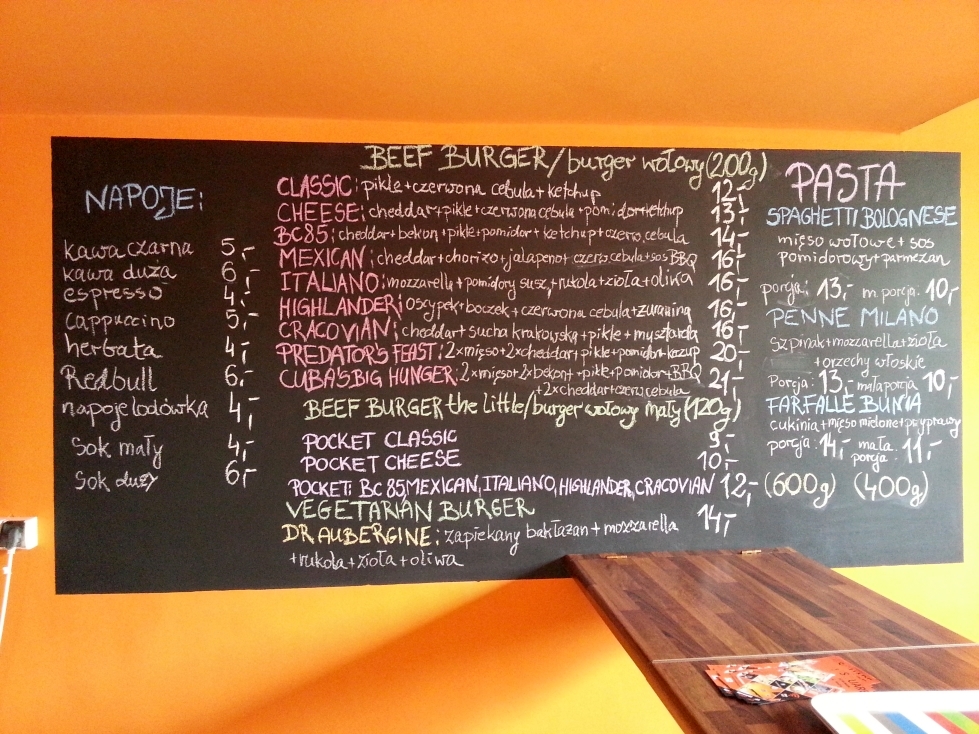 NAPOJE:
kawa czarna 5,-
kawa duża 6,-
espresso 4,-
cappuccino 5,-
herbata 4,-
Redbull 6,-
napoje lodówka 4,-
Sok mały 4,-
Sok duży 6,-
BEEF BURGER/burger wołowy (200g)
CLASSIC: pikle+czerwona cebula+ketchup 12,-
CHEESE: cheddar+pikle+czerwona cebula+pomidor+ketchup 13,-
BC85: cheddar+bekon+pikle+pomidor+ketchup+czerw. cebula 14,-
MEXICAN: cheddar+chorizo+jalapeno+czerw. cebula+sos BBQ 16,-
ITALIANO: mozzarella+pomidory susz,+rukola+zioła+oliwa 16,-
HIGHLANDER: oscypek+boczek+czerwona cebula+żurawina 16,-
CRACOVIAN: cheddar+sucha krakowska+pikle+musztarda 16,-
PREDATOR'S FEAST: 2xmięso+2xcheddar+pikle+pomidor+keczup 20,-
CUBA'S BIG HUNGER: 2xmięso+2xbekon+pikle+pomidor+BBQ 21,-
+2xcheddar+czerw. cebula
BEEF BURGER the little/burger wołowy mały (120g)
POCKET CLASSIC 9,-
POCKET CHEESE 10,-
POCKET: BC 85, MEXICAN, ITALIANO, HIGHLANDER, CRACOVIAN 12,-
VEGETARIAN BURGER 14,-
DR AUBERGINE: zapiekany bakłażan+mozzarella
+rukola+zioła+oliwa
PASTA
SPAGHETTI BOLOGNESE
mięso wołowe+sos
pomidorowy+parmezan
porcja: 13,- m. porcja: 10,-
PENNE MILANO
szpinak+mozzarella+zioła
+orzechy włoskie
Porcja: 13,- mała porcja 10,-
FARFALLE BUNIA
cukinia+mięso mielone+przyprawy
porcja: 14,- mała porcja: 11,-
(600g) (400g)